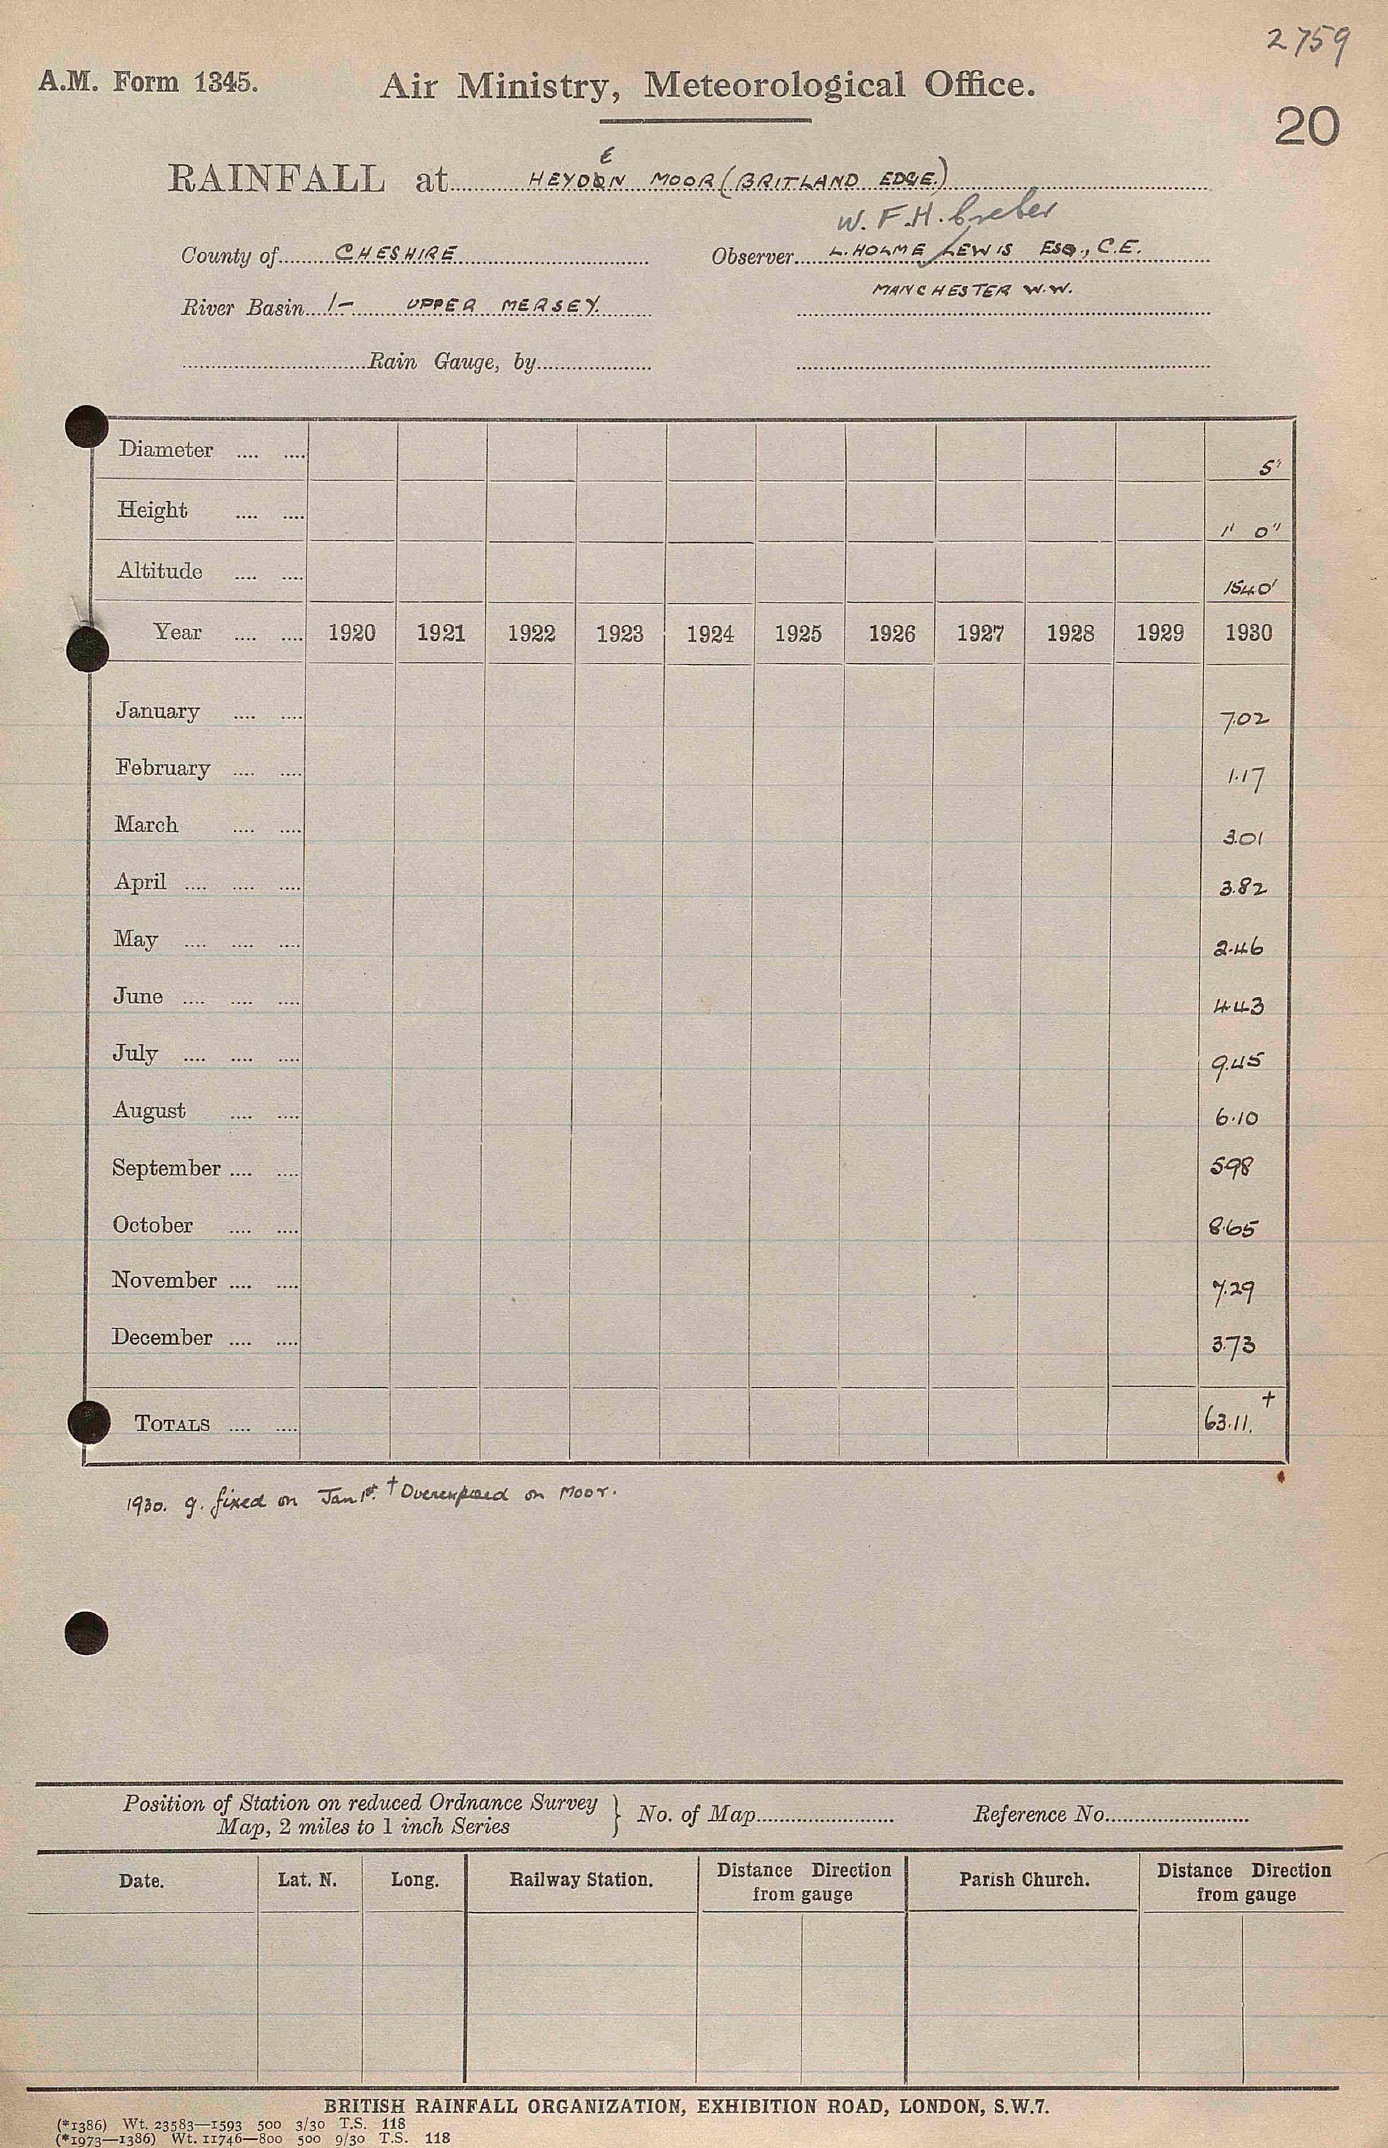 2759
A.M. Form 1345. Air Ministry, Meteorological Office.
20
E
RAINFALL at HEYDON MOOR (BRITLAND EDGE.)
W. F. H. Creber
County of CHESHIRE Observer L. HOLME LEWIS ESQ., C.E.
MANCHESTER W.W.
River Basin 1- UPPER MERSEY.
Rain Gauge, by
Diameter .... .... 5"
Height .... .... 1' 0"
Altitude .... .... 1540'
Year .... .... 1920 1921 1922 1923 1924 1925 1926 1927 1928 1929 1930
January .... .... 7.02
February .... .... 1.17
March .... .... 3.01
April .... .... .... 3.82
May .... .... .... 2.46
June .... .... .... 4.43
July .... .... .... 9.45
August .... .... 6.10
September .... .... 5.98
October .... .... 8.65
November .... .... 7.29
December .... .... 3.73
TOTALS .... .... 63.11. +
1930. g. fixed on Jan 1st. † Overexposed on Moor.
Position of Station on reduced Ordnance Survey Map, 2 miles to 1 inch Series } No. of Map Reference No.
Date. Lat. N. Long. Railway Station. Distance Direction from gauge Parish Church. Distance Direction from gauge
BRITISH RAINFALL ORGANIZATION, EXHIBITION ROAD, LONDON, S.W.7.
(*1386) Wt. 23583—1593 500 3/30 T.S. 118
(*1973—1386) Wt. 11746—800 500 9/30 T.S. 118